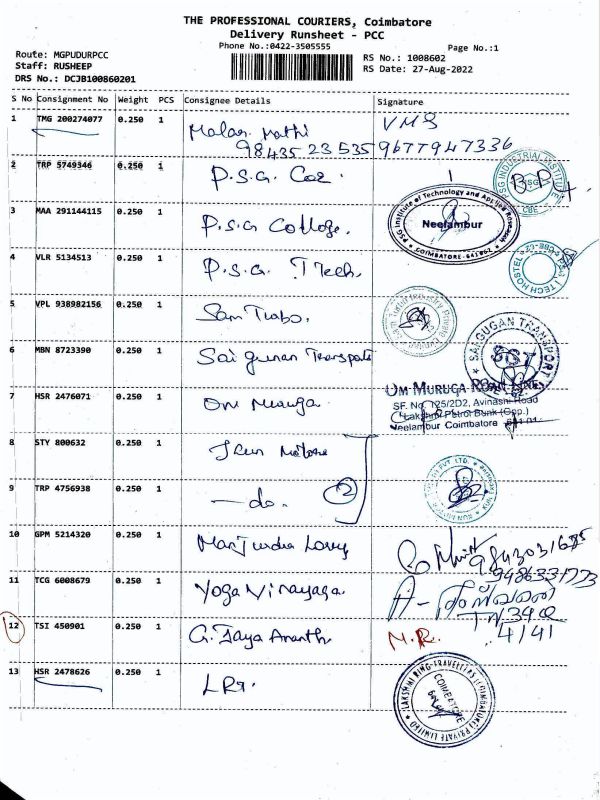 THE PROFESSIONAL COURIERS, Coimbatore
Delivery Runsheet - PCC
Phone No.:0422-3505555
Page No.:1
Route: MGPUDURPCC
Staff: RUSHEEP
DRS No.: DCJB100860201
RS No.: 1008602
RS Date: 27-Aug-2022
S No Consignment No Weight PCS Consignee Details Signature
1 TMG 200274077 0.250 1 Malar Mathi VMS
98435 23535 9677947336
2 TRP 5749346 0.250 1 P.S.G. Cae
3 MAA 291144115 0.250 1 P.S.G College.
PSG Institute of Technology and Applied Research
Neelambur
COIMBATORE-641062
4 VLR 5134513 0.250 1 P.S.G. Itech.
5 VPL 938982156 0.250 1 Sam Turbo.
6 MBN 8723390 0.250 1 Sai gunan Transports
SAI GUGAN TRANSPORT
SGT
7 HSR 2476071 0.250 1 Om Muruga
OM MURUGA ROAD LINES
SF. No. 125/2D2, Avinashi Road
Lakshmi Petrol Bunk (Opp.)
Neelambur Coimbatore
8 STY 800632 0.250 1
9 TRP 4756938 0.250 1 — do. 2
10 GPM 5214320 0.250 1 Manjundra Lorry
11 TCG 6008679 0.250 1 Yoga Vinayaga
9486331773
12 TSI 450901 0.250 1 G. Jaya Ananth N.R.
4141
13 HSR 2478626 0.250 1 LRT.
COIMBATORE